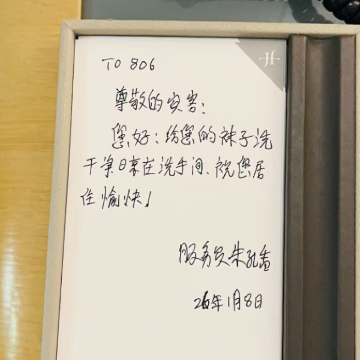 TO 806
尊敬的宾客:
您好:给您的袜子洗
干净日亮在洗手间、祝您居
住愉快!
服务员朱孔
26年1月8日